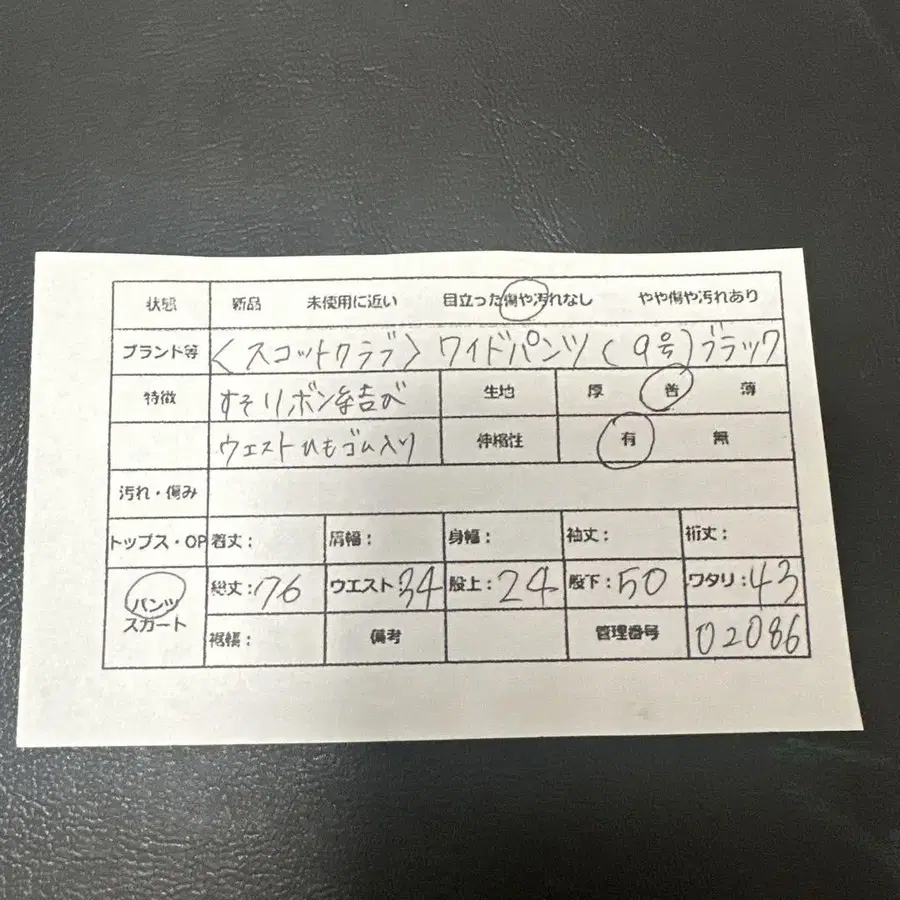 状態 新品 未使用に近い 目立った傷や汚れなし やや傷や汚れあり
ブランド等 〈スコットクラブ〉ワイドパンツ(9号)ブラック
特徴 すそリボン結び 生地 厚 普 薄
ウエストひもゴム入り 伸縮性 有 無
汚れ・傷み
トップス・OP 着丈: 肩幅: 身幅: 袖丈: 裄丈:
パンツ 総丈:76 ウエスト34 股上:24 股下:50 ワタリ:43
スカート 裾幅: 備考 管理番号 02086